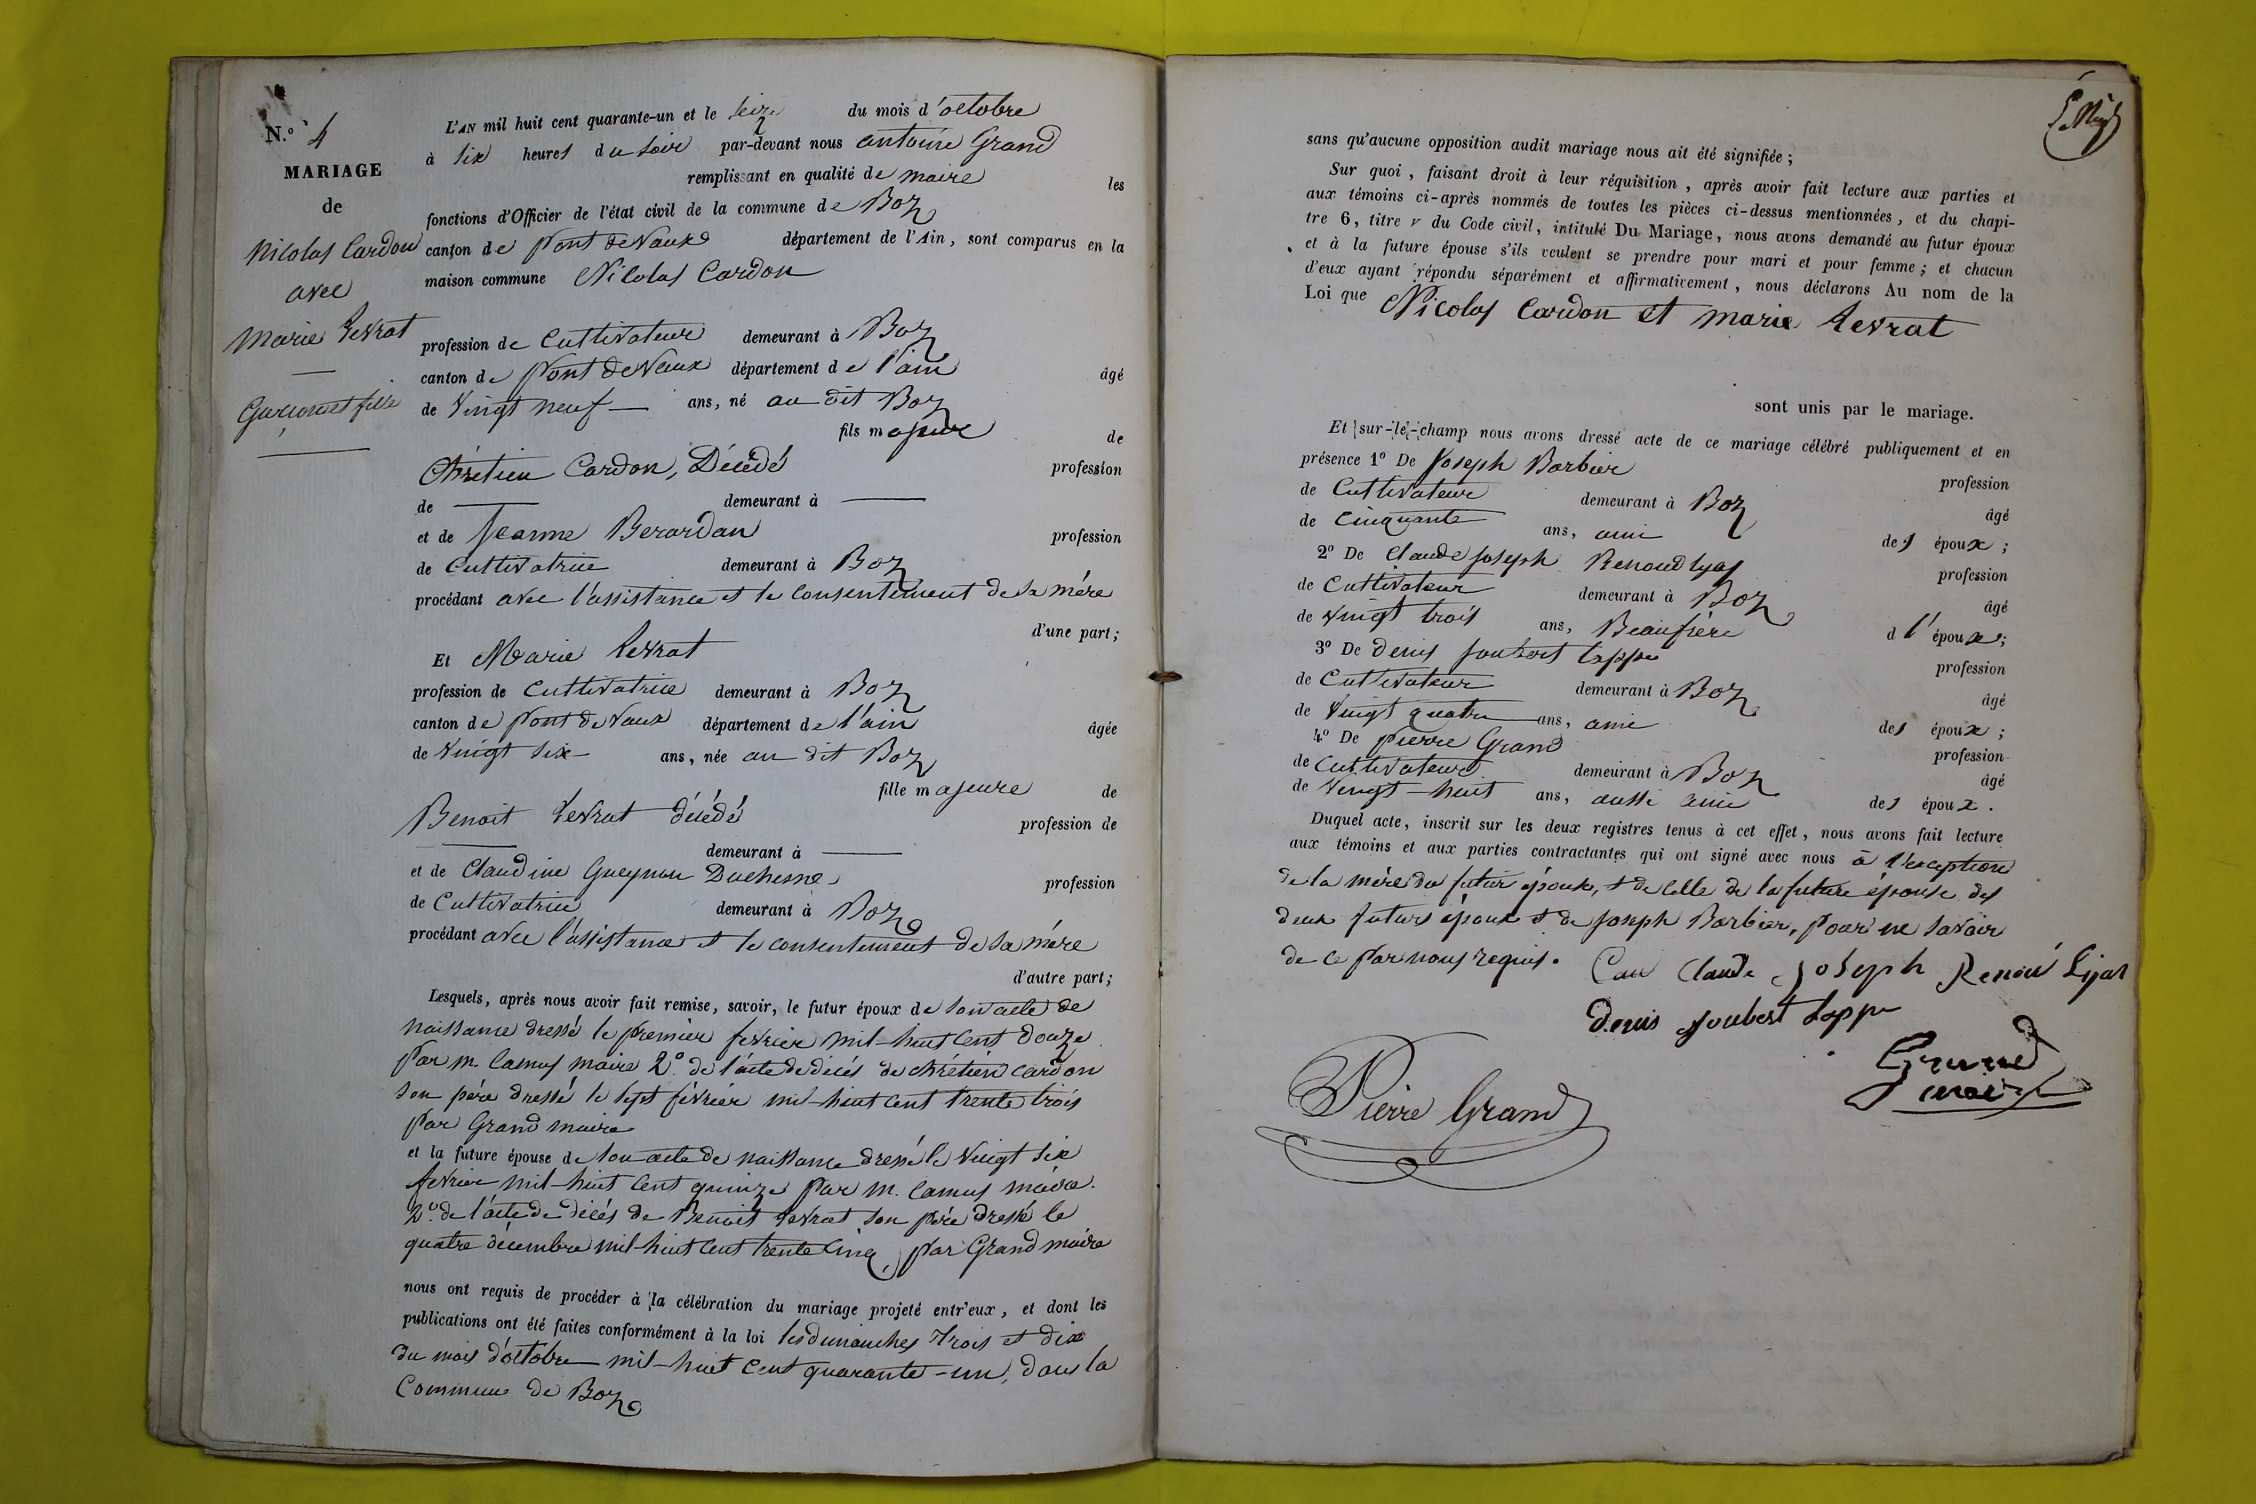 N.º 4
MARIAGE
de
Nicolas Cardon
avec
Marie Levrat
Garçon et fille
L'AN mil huit cent quarante-un et le seize du mois d'octobre
à six heures du soir par-devant nous antoine Grand
remplissant en qualité de maire les
fonctions d'Officier de l'état civil de la commune de Boz
canton de Pont de Vaux département de l'Ain, sont comparus en la
maison commune Nicolas Cardon
profession de Cultivateur demeurant à Boz
canton de Pont de Vaux département de l'ain âgé
de Vingt neuf ans, né au dit Boz
fils majeur de
Chrétien Cardon, Décédé profession
de demeurant à
et de Jeanne Berardan profession
de Cultivatrice demeurant à Boz
procédant avec l'assistance et le consentement de sa mère
d'une part;
Et Marie Levrat
profession de Cultivatrice demeurant à Boz
canton de Pont de Vaux département de l'ain âgée
de Vingt six ans, née au dit Boz
fille majeure de
Benoit Levrat décédé profession de
demeurant à
et de Claudine Gueynon Duchesne profession
de Cultivatrice demeurant à Boz
procédant avec l'assistance et le consentement de sa mère
d'autre part;
Lesquels, après nous avoir fait remise, savoir, le futur époux de son acte de
naissance dressé le premier fevrier mil-huit cent douze
par m. Camus maire 2º. de l'acte de décés de chrétien cardon
son père dressé le sept février mil-huit cent trente trois
par Grand maire
et la future épouse de son acte de naissance dressé le Vingt six
fevrier mil-huit cent quinze par m. Camus maire.
2º. de l'acte de décés de Benoit Levrat son père dressé le
quatre décembre mil-huit cent trente cinq par Grand maire
nous ont requis de procéder à la célébration du mariage projeté entr'eux, et dont les
publications ont été faites conformément à la loi les dimanches trois et dix
du mois d'octobre mil-huit cent quarante-un, dans la
Commune de Boz
sans qu'aucune opposition audit mariage nous ait été signifiée;
Sur quoi, faisant droit à leur réquisition, après avoir fait lecture aux parties et
aux témoins ci-après nommés de toutes les pièces ci-dessus mentionnées, et du chapi-
tre 6, titre v du Code civil, intitulé Du Mariage, nous avons demandé au futur époux
et à la future épouse s'ils veulent se prendre pour mari et pour femme; et chacun
d'eux ayant répondu séparément et affirmativement, nous déclarons Au nom de la
Loi que Nicolas Cardon et marie Levrat
sont unis par le mariage.
Et sur-le-champ nous avons dressé acte de ce mariage célébré publiquement et en
présence 1º De Joseph Barbier profession
de Cultivateur demeurant à Boz âgé
de Cinquante ans, ami des époux;
2º De Claude Joseph Renoud lyas profession
de Cultivateur demeurant à Boz âgé
de vingt trois ans, Beaufrère d l'époux;
3º De denis Joubert lappe profession
de Cultivateur demeurant à Boz âgé
de Vingt quatre ans, ami des époux;
4º De Pierre Grand profession
de Cultivateur demeurant à Boz âgé
de Vingt-huit ans, aussi ami des époux.
Duquel acte, inscrit sur les deux registres tenus à cet effet, nous avons fait lecture
aux témoins et aux parties contractantes qui ont signé avec nous à l'exception
de la mère du futur époux, et de celle de la future épouse des
deux futurs époux et de Joseph Barbier, pour ne savoir
de ce par nous requis.
Claude Joseph Renoú Lijas
denis Joubert lappe
Grand
maire
Pierre Grand